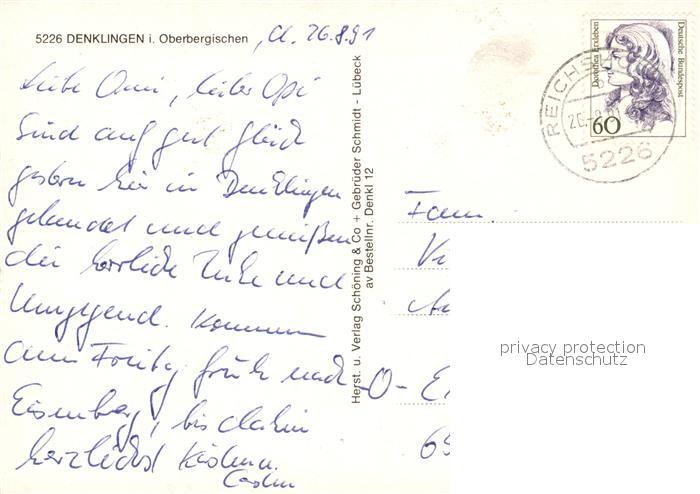 5226 DENKLINGEN i. Oberbergischen, d. 26.8.91
Liebe Omi, lieber Opi
Sind auf gut Glück
gestern hier in Denklingen
gelandet und genießen
die herrliche Ruhe und
Umgegend. Kommen
am Freitag früh nach
Eisenberg, bis dahin
herzlichst
Herst. u. Verlag Schöning & Co + Gebrüder Schmidt - Lübeck
av Bestellnr. Denkl 12
Dorothea Erxleben
Deutsche Bundespost
60
5226
Fam.
-O-
privacy protection
Datenschutz